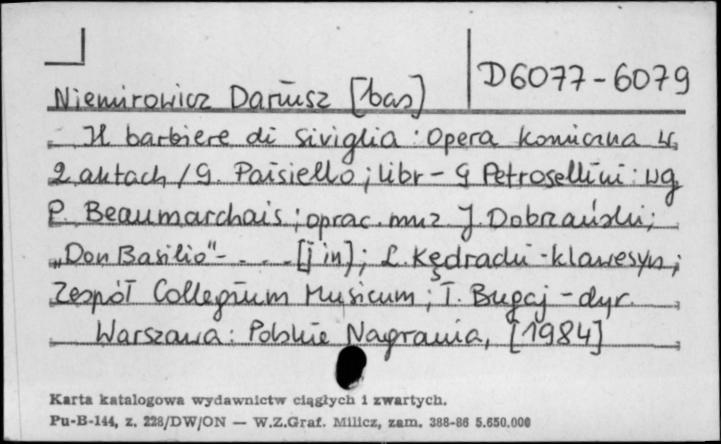 D6077-6079
Niemirowicz Dariusz [bas]
Il barbiere di Siviglia : Opera komiczna w
2 aktach / G. Paisiello ; libr - G Petrosellini : wg
P. Beaumarchais ; oprac. muz J. Dobrzański ;
„Don Basilio" - . . . [i in] ; L. Kędracki - klawesyn ;
Zespół Collegium Musicum ; T. Bugaj - dyr.
Warszawa : Polskie Nagrania, [1984]
Karta katalogowa wydawnictw ciągłych i zwartych.
Pu-B-144, z. 228/DW/ON — W.Z.Graf. Milicz, zam. 388-86 5.650.000